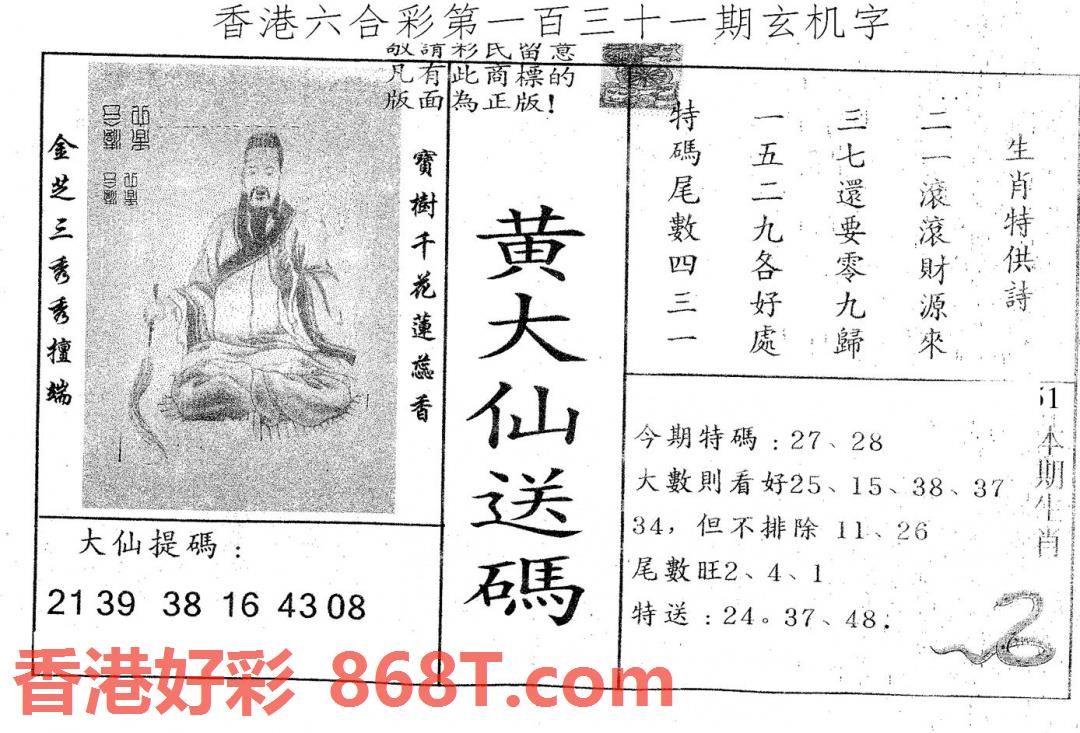 香港六合彩第一百三十一期玄机字
敬請彩民留意
凡有此商標的
版面為正版!
金芝三秀秀擅端
寶樹千花蓮蕊香
黄大仙送碼
生肖特供詩
二一滾滾財源來
三七還要零九歸
一五二九各好處
特碼尾數四三一
今期特碼:27、28
大數則看好25、15、38、37
34，但不排除 11、26
尾數旺2、4、1
特送:24。37、48.
本期生肖
大仙提碼:
21 39 38 16 43 08
香港好彩 868T.com